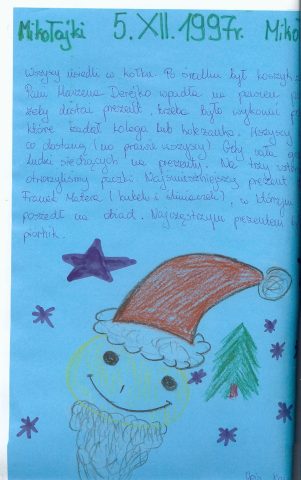 Mikołajki 5.XII.1997r. Miko
Wszyscy usiedli w kółku. Po środku był koszyk
Pani Marzena Derejko wpadła na pomysł
żeby dostać prezent, trzeba było wykonać
które zadał kolega lub koleżanka. Wszyscy
co dostaną (no prawie wszyscy). Gdy cała
ludzi siedzących na prezenty. Na trzy
otworzyliśmy paczki. Najśmieszniejszy prezent
Franek Matera (kubek i śliniaczek), w którym
poszedł na obiad. Najczęstszym prezentem
piórnik.